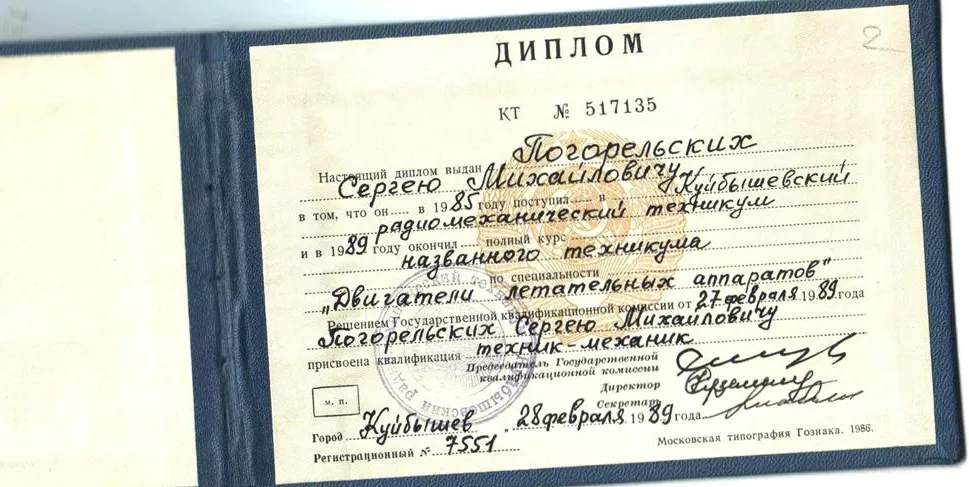 2
ДИПЛОМ
КТ № 517135
Настоящий диплом выдан Погорельских
Сергею Михайловичу
в том, что он в 1985 году поступил в Куйбышевский
радиомеханический техникум
и в 1989 году окончил полный курс
названного техникума
по специальности
„Двигатели летательных аппаратов"
Решением Государственной квалификационной комиссии от 27 февраля 1989 года
Погорельских Сергею Михайловичу
присвоена квалификация техник-механик
Председатель Государственной
квалификационной комиссии
Директор
Секретарь
М. П.
Город Куйбышев, 28 февраля 1989 года.
Регистрационный № 7551
Московская типография Гознака. 1986.